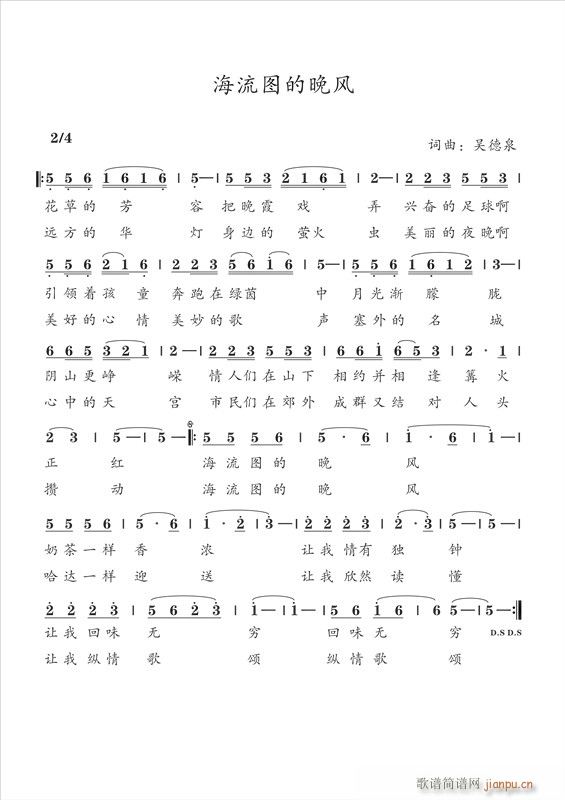 海流图的晚风
2/4
词曲：吴德泉
5 5 6 1 6 1 6 | 5— | 5 5 3 2 1 6 1 | 2— | 2 2 3 5 5 3 |
花草的 芳 容 把晚霞 戏 弄 兴奋的足球啊
远方的 华 灯 身边的 萤火 虫 美丽的夜晚啊
5 5 6 2 1 6 | 2 2 3 5 5 i 6 | 5— | 5 5 6 1 6 1 2 | 3— |
引领着孩 童 奔跑在绿茵 中 月光渐 朦 胧
美好的心 情 美妙的歌 声 塞外的 名 城
6 6 5 3 2 1 | 2— | 2 2 3 5 5 3 | 6 6 i 6 5 3 | 2 · 1 |
阴山更峥 嵘 情人们在山下 相约并相 逢 篝 火
心中的天 宫 市民们在郊外 成群又结 对 人 头
2 3 | 5— | 5— :| 5 5 5 6 | 5 · 6 | i · 6 |
正 红 海流图的 晚 风
攒 动 海流图的 晚 风
5 5 5 6 | 5 · 6 | i · 2 | 3— | 2 2 2 3 | 2 · 3 | 5— | 5— |
奶茶一样 香 浓 让我 情有 独 钟
哈达一样 迎 送 让我 欣然 读 懂
2 2 2 3 | 5 6 2 3 | i— | i— | 5 5 6 | i 6 2 6 | 5— | 5— :|
让我 回味 无 穷 回味 无 穷 D.S D.S
让我 纵情 歌 颂 纵情 歌 颂
歌谱简谱网
jianpu.cn